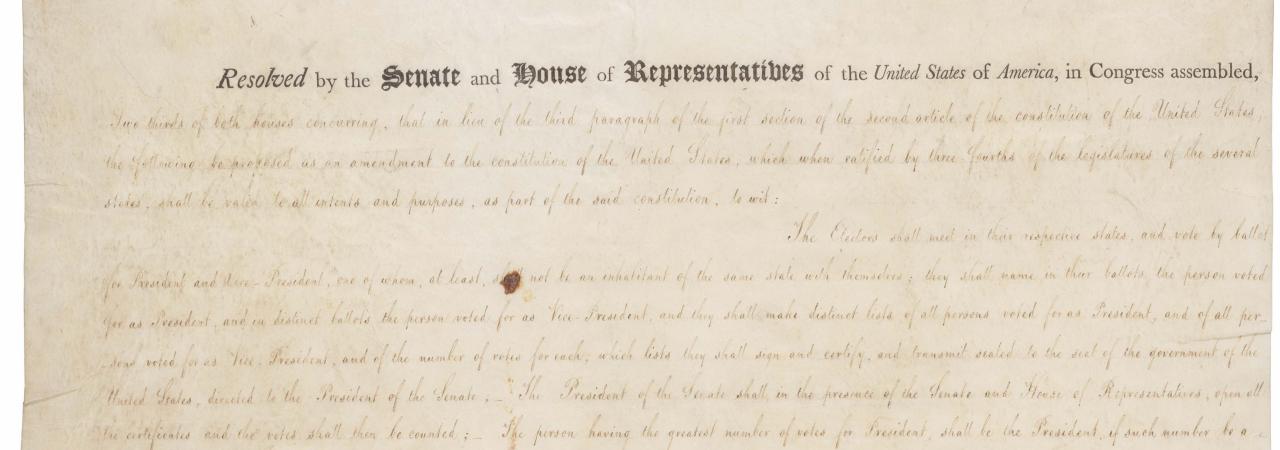 Resolved by the Senate and House of Representatives of the United States of America, in Congress assembled,
Two thirds of both houses concurring, that in lieu of the third paragraph of the first section of the second article of the constitution of the United States,
the following be proposed as an amendment to the constitution of the United States, which when ratified by three-fourths of the legislatures of the several
states, shall be valid to all intents and purposes, as part of the said constitution, to wit:
The Electors shall meet in their respective states, and vote by ballot
for President and Vice-President, one of whom, at least, shall not be an inhabitant of the same state with themselves; they shall name in their ballots the person voted
for as President, and in distinct ballots the person voted for as Vice-President, and they shall make distinct lists of all persons voted for as President, and of all per-
sons voted for as Vice-President, and of the number of votes for each, which lists they shall sign and certify, and transmit sealed to the seat of the government of the
United States, directed to the President of the Senate;_ The President of the Senate shall, in the presence of the Senate and House of Representatives, open all
the certificates and the votes shall then be counted;_ The person having the greatest number of votes for President, shall be the President, if such number be a